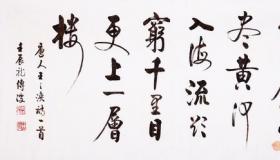 尽黃河
入海流欲
窮千里目
更上一層
樓
唐人王之渙詩一首
壬辰